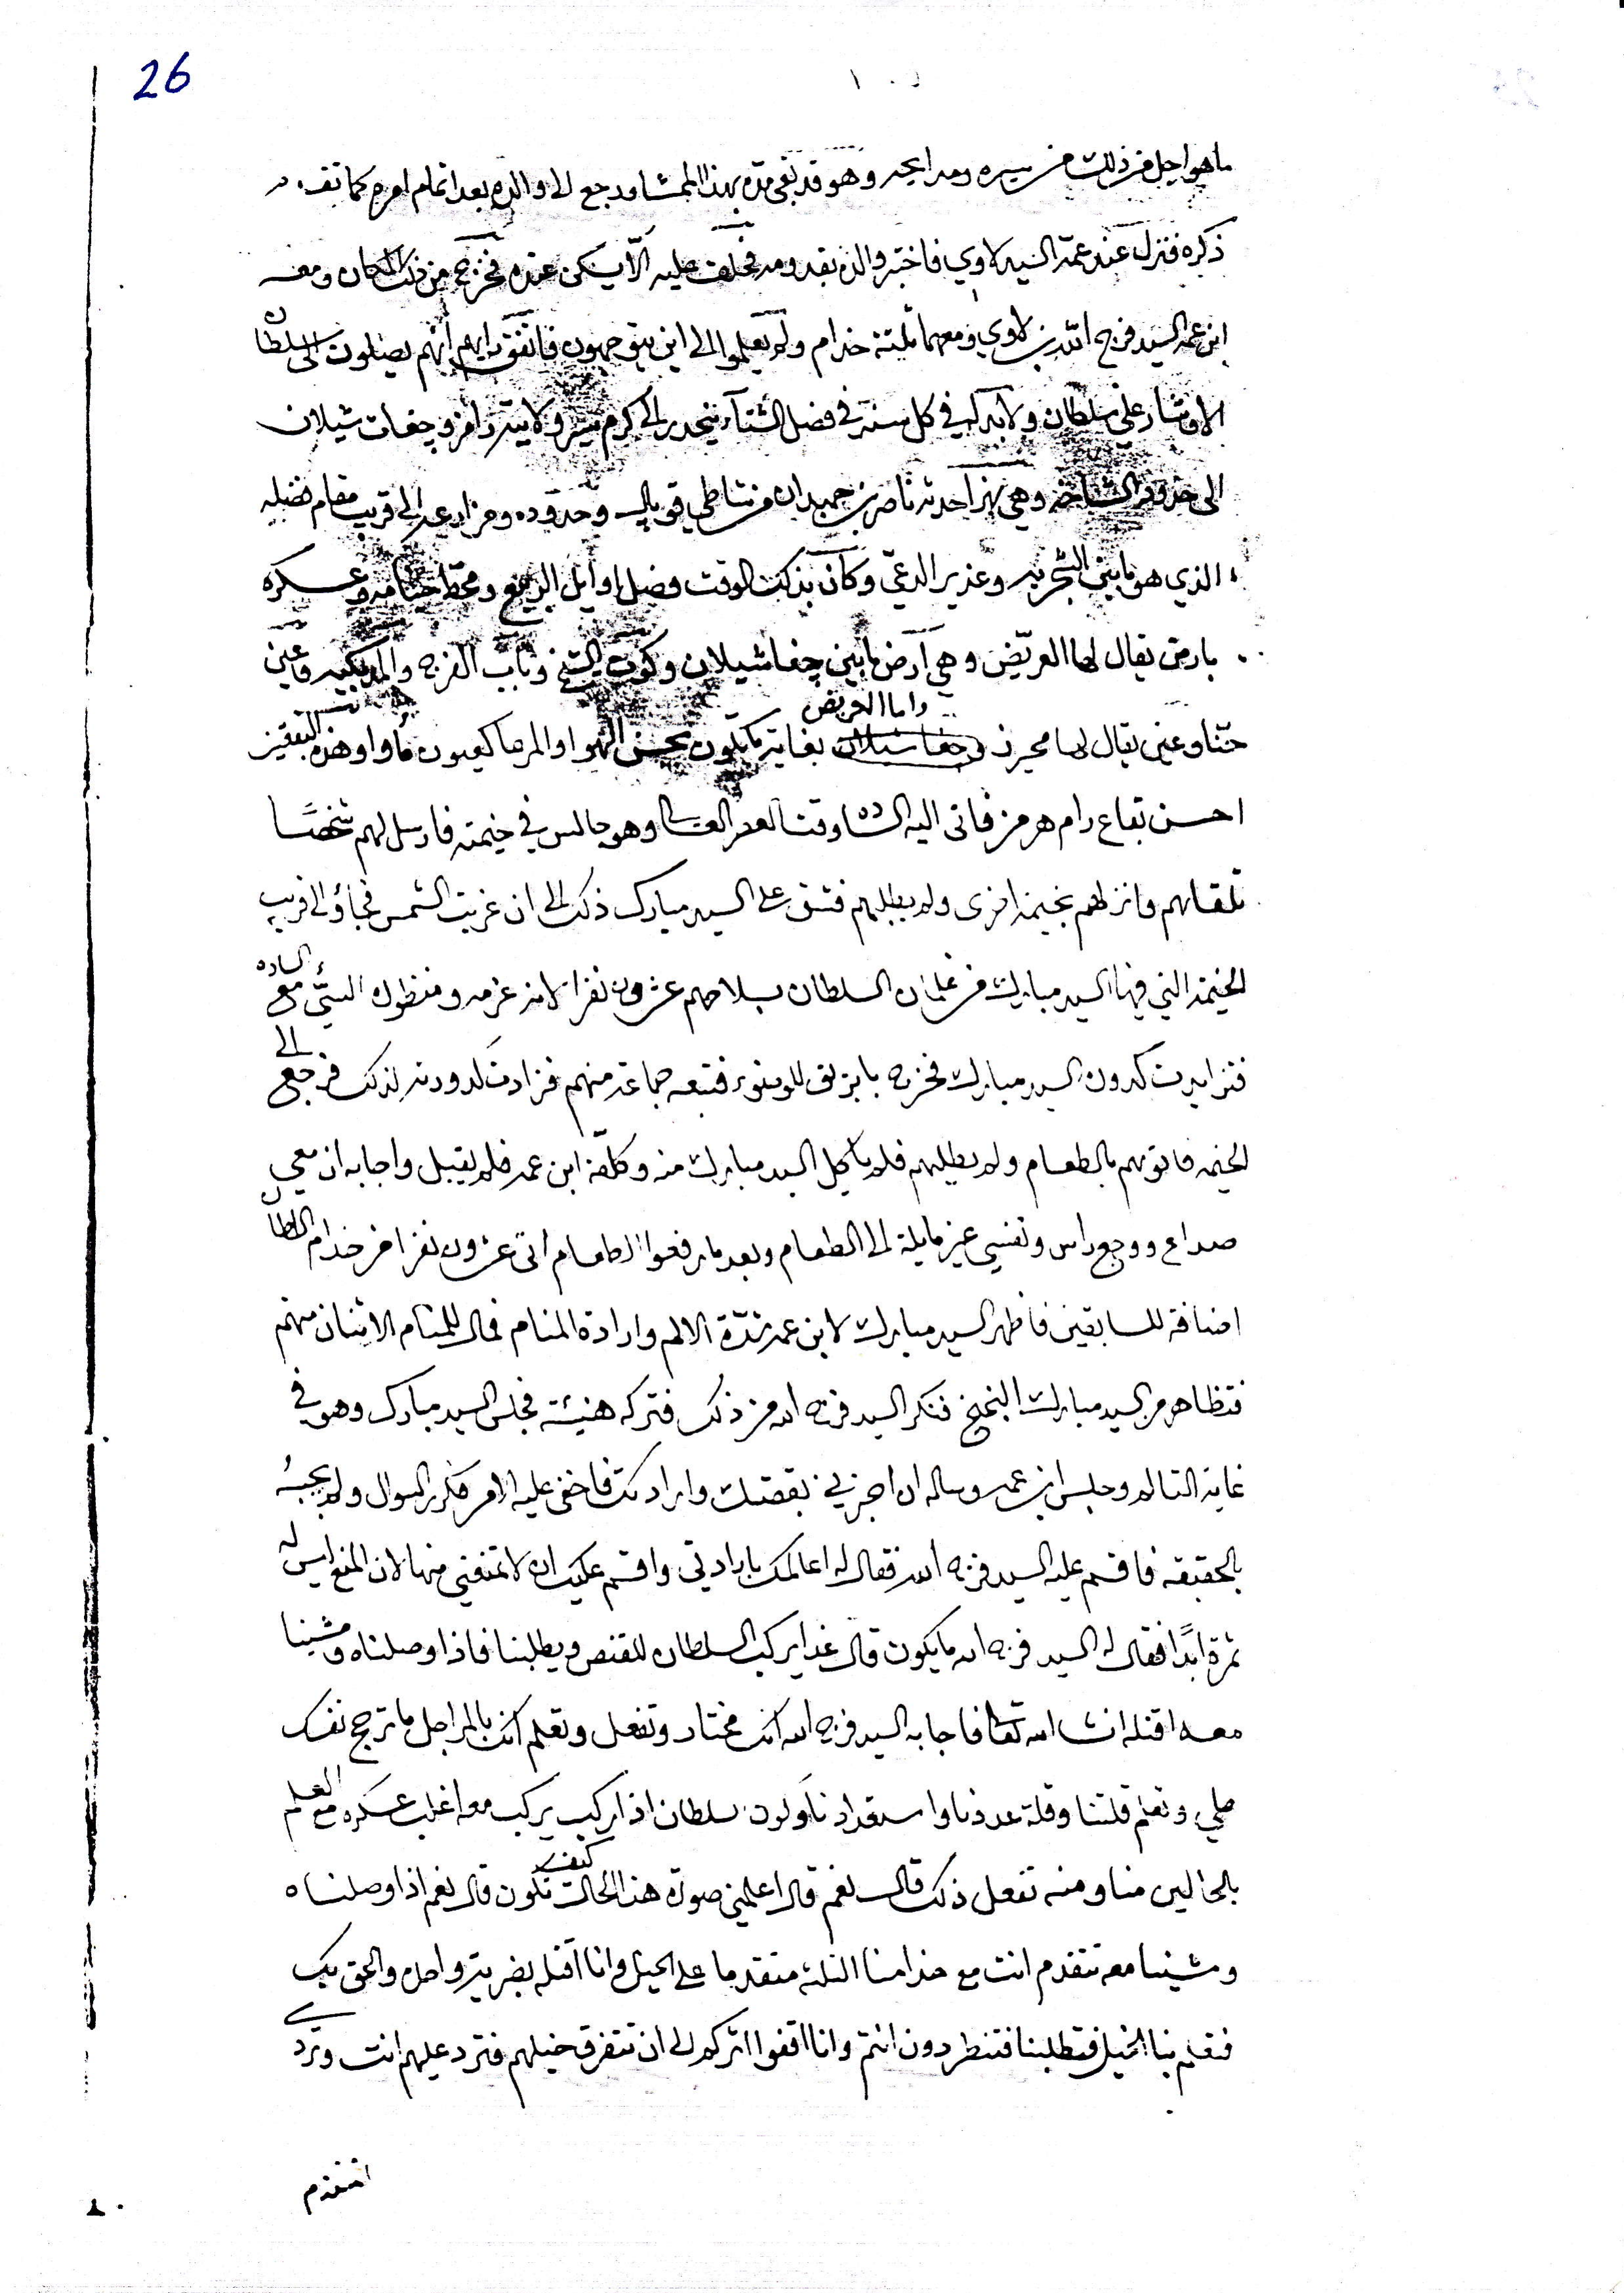 26
ما هو اجل من ذلك من سيره ومدايحه وهو قد بقى مدة بهذا الممشا ورجع الى والده بعد اتمام امره كما تقدم
ذكره فنزل عند عمه السيد لاوي فاخبر والده بقدومه فحلف عليه الّا يسكن عنده فخرج من ذلك المكان ومعه
ابن عمه السيد فرج الله بن لاوي ومعهما ثلثة خدام ولم يعلموا الى اين يتوجهون فاتفق رايهم انهم يصلون الى السلطان
الافشار علي سلطان ولابد له في كل سنة في فصل الشتآء ينحدر الى وجغات شيلان
الى حدود الشاخه وهي نهر احدثه ناصر بن حميدان من شاطي وحدوده ومزارعه الى قريب مقام
الذي هو ما بين وغدير الدعي وكان بذلك الوقت فصل اوايل الربيع ومحط خيامه وعسكره
بارض يقال لها العريض وهي ارض ما بين جغا شيلان وكوت الشيخ وباب الفرج
واما العريض
يقال لها بغاية ما يكون بحسن الهوا والمرعا كعيون وهذه البقعة
احسن بقاع رام هرمز فاتى اليه الساده وقت العصر وهو جالس في خيمته فارسل لهم شخصًا
تلقاهم وانزلهم بخيمة اخرى ولم يطلبهم فشق على السيد مبارك ذلك الى ان غربت الشمس فجاؤ الى قريب
الخيمة التي فيها السيد مبارك من غلمان السلطان بسلاحهم عشرون نفرا لامر عزمه ومنظوره السيّئ مع الساده
فتزايدت كدورة السيد مبارك فخرج بابريق للوضوء فتبعه جماعة منهم فزادت كدورته لذلك فرجع الى
الخيمه فاتوهم بالطعام ولم يطلبهم فلم ياكل السيد مبارك منه وكلّفه ابن عمه فلم يقبل واجابه ان معي
صداع ووجع راس ونفسي غير مايلة الى الطعام وبعد ما رفعوا الطعام اتى عشرون نفرا من خدام السلطان
اضافة للسابقين فاظهر السيد مبارك لابن عمه شدّة الالم وارادة المنام فمال للمنام الاثنان منهم
فتظاهر من السيد مبارك فنكر السيد فرج الله من ذلك فتركه هنيئة فجلس السيد مبارك وهو في
غاية التالم وجلس ابن عمه وساله ان اخبرني بقصتك وارادتك فاخفى عليه الامر فكرر السوال ولم يجبهُ
بالحقيقه فاقسم عليه السيد فرج الله فقال له اعالمك بارادتي واقسم عليك ان لا تمنعني منها لان المنع ليس له
ثمرة ابدًا فقال له السيد فرج الله ما يكون قال غدا يركب السلطان للقنص ويطلبنا فاذا وصلناه ومشينا
معه اقتله انشا الله تعا فاجابه السيد فرج الله انك مختار وتفعل وتعلم انك بالمراجل ما ترجح نفسك
علي وتعلم قلتنا وقلة عددنا واستعدادنا ولون سلطان اذا ركب يركب معه اغلب عسكره مع العلم
بالحالين منا ومنه تفعل ذلك قال نعم قال اعلمني صورة هذا الحالت كيف تكون قال نعم اذا وصلناه
ومشينا معه تتقدم انت مع خدامنا الثلثه متقدما على الخيل وانا اقتله بضربة واحده والحق بك
فتعلم بنا الخيل فتطلبنا فتنطردون انتم وانا اقفوا اثركم الى ان تتفرق خيلهم فترد عليهم انت ويردي